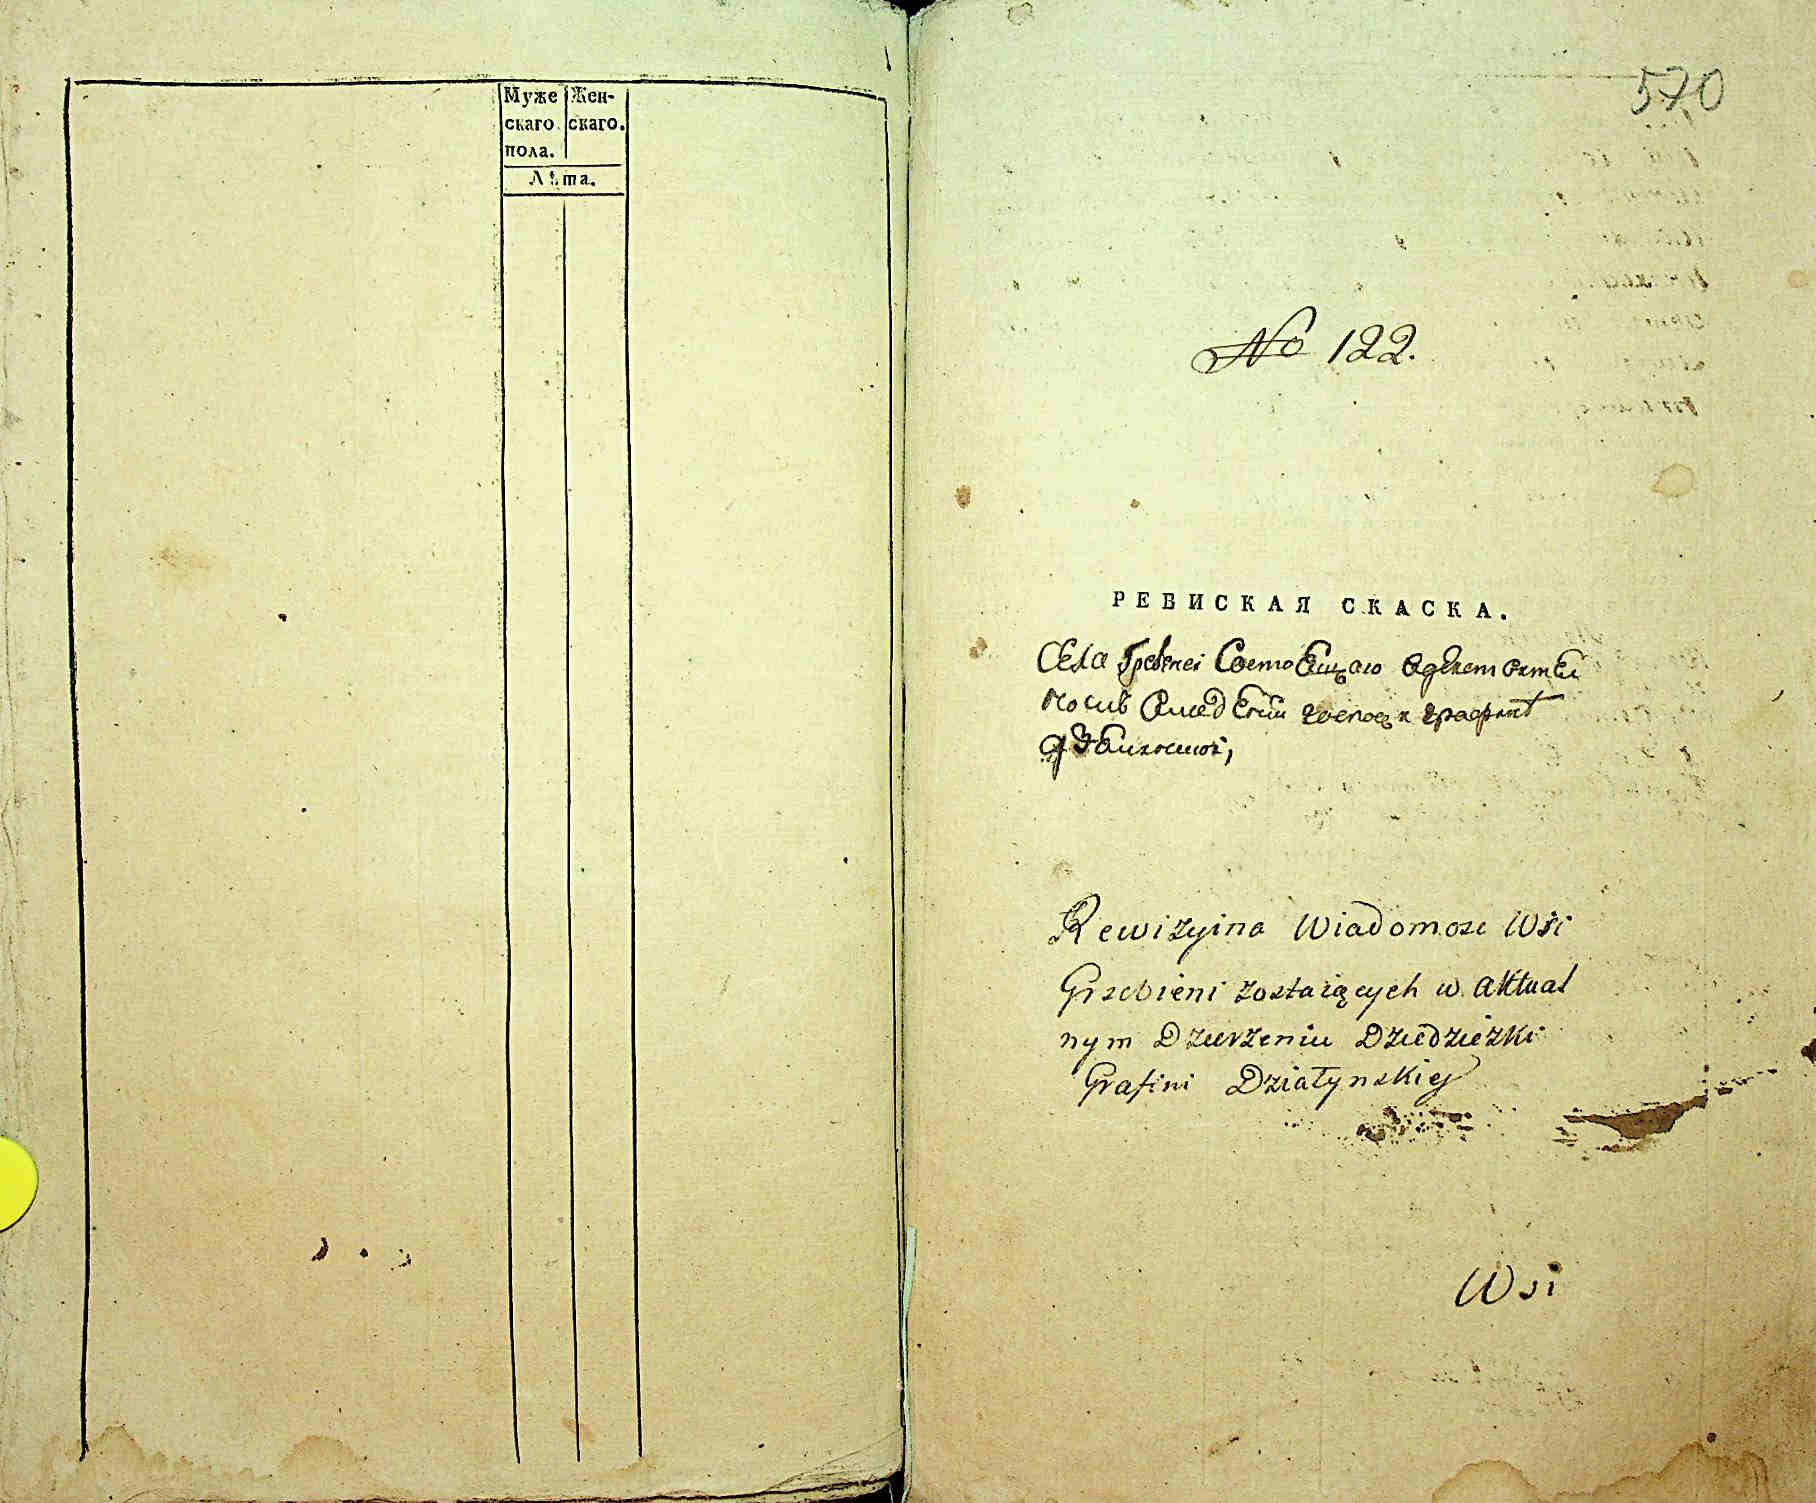 Муже Жен-
скаго скаго.
пола.
Лѣта.
570
No 122.
РЕВИСКАЯ СКАСКА.
Села Гребенеі
госпожи графинѣ
Rewizyina Wiadomosc Wsi
Grzebieni zostaiących w aktual
nym Dzierzeniu Dziedziczki
Grafini Działynskiey
Wsi